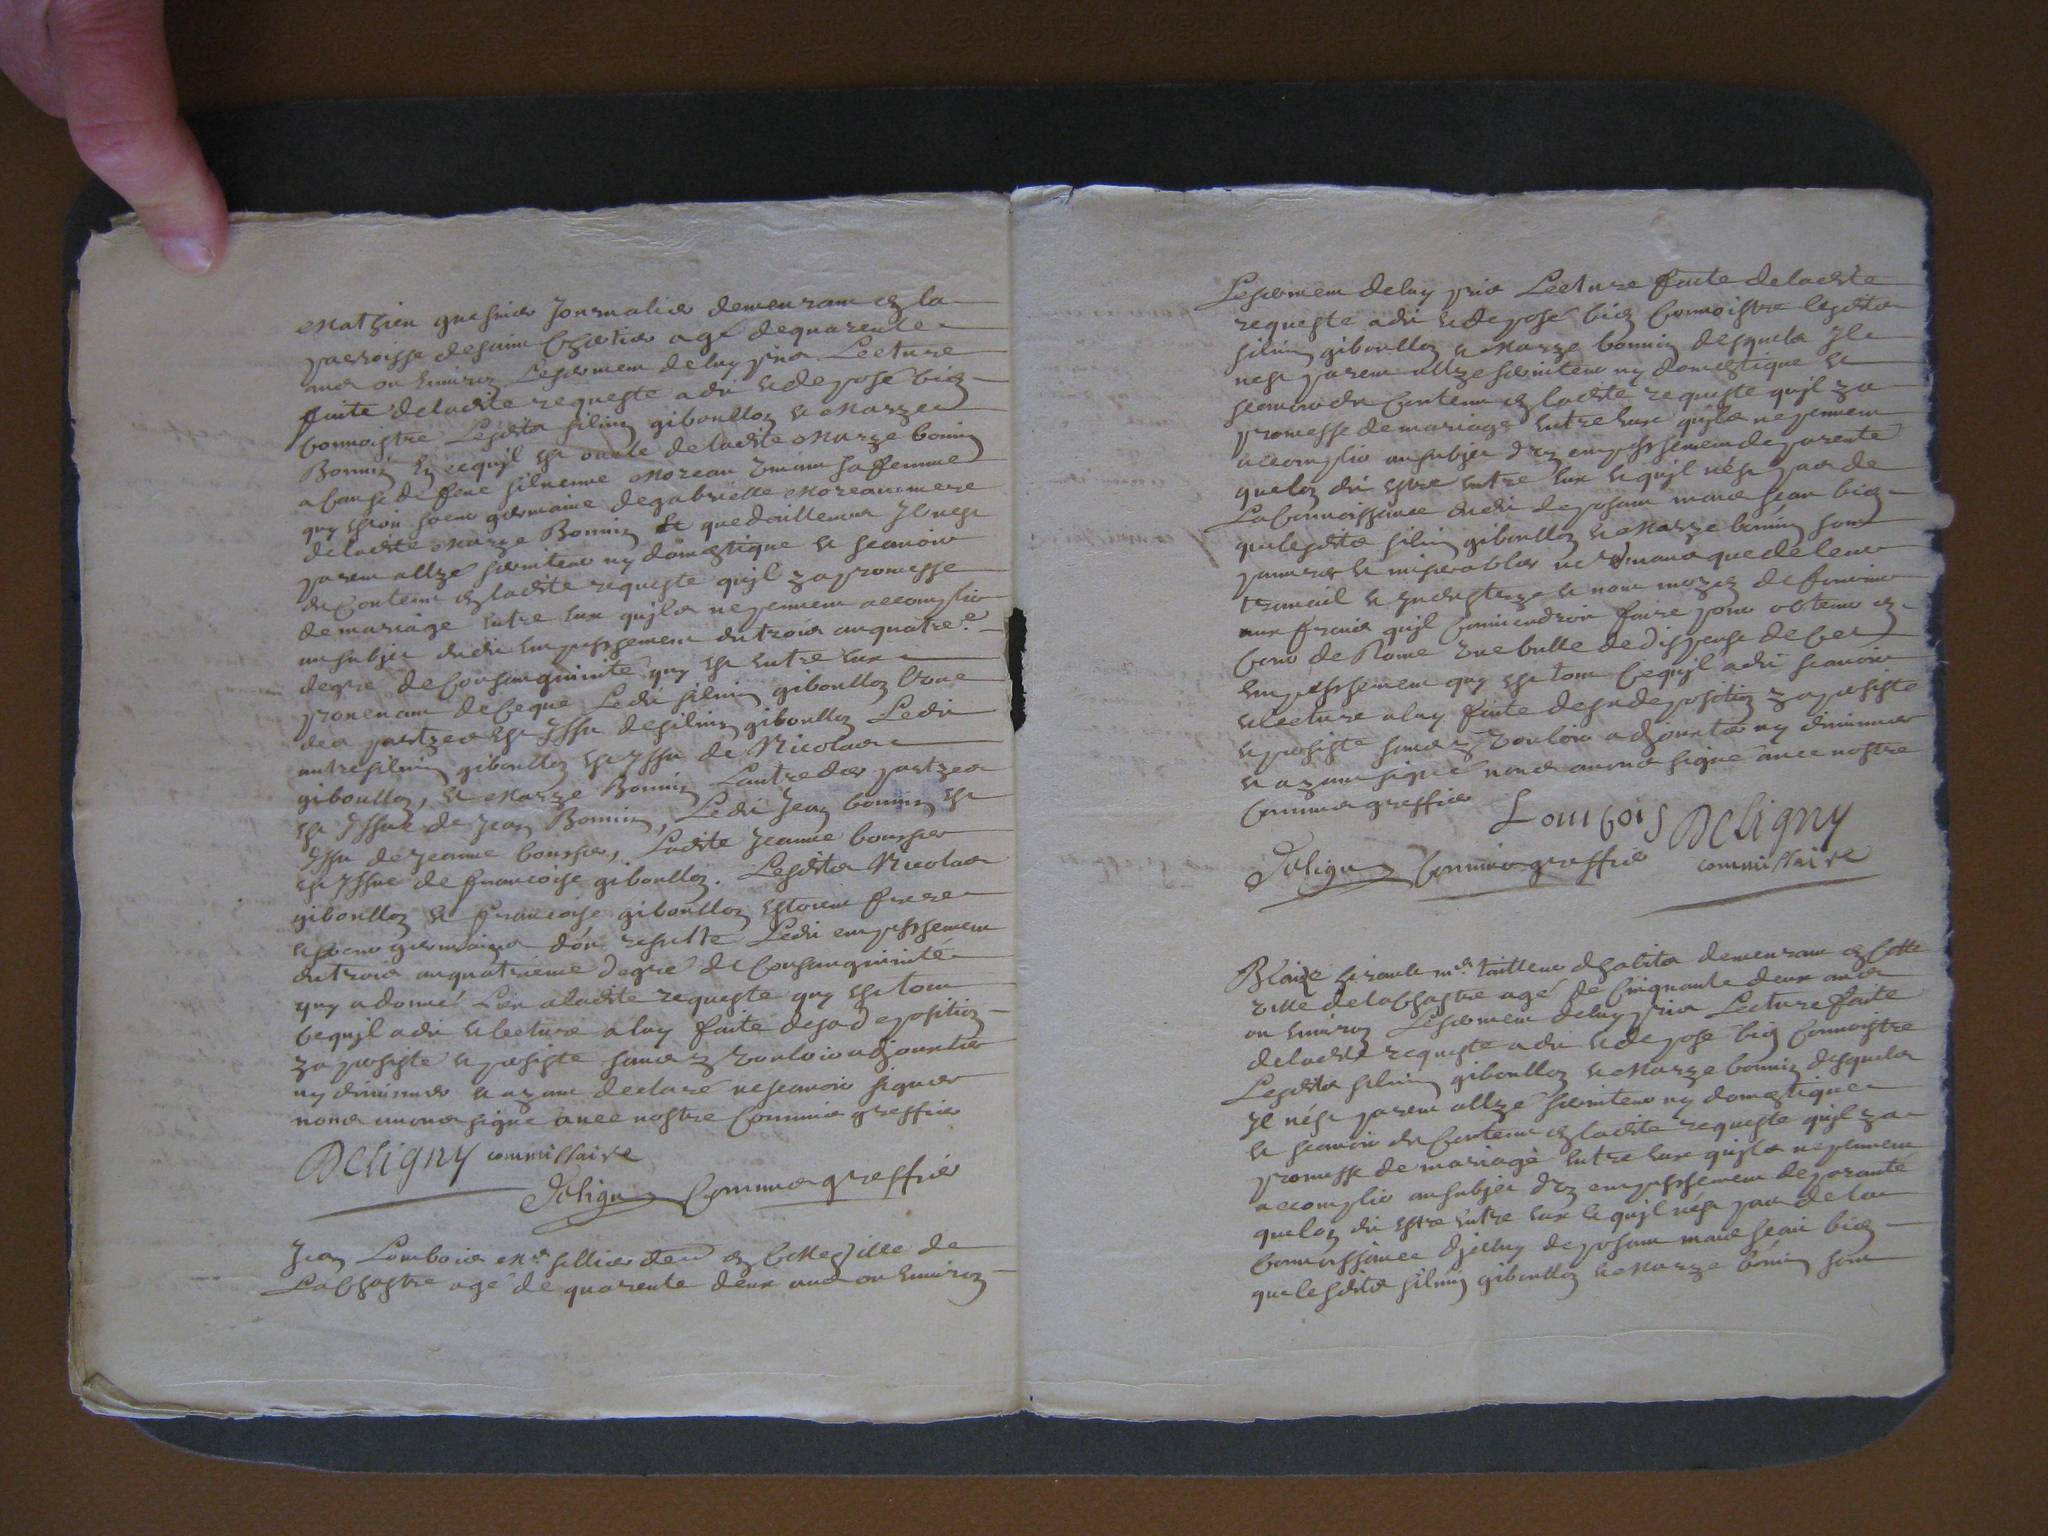 Mathieu quesnier Journalier demeurant en la
parroisse de saint Chartier agé de quarente
ans ou environ Le serment de luy pris Lecture
faite de ladite requeste a dit et deposé bien
Connoistre Lesdits silvin giboulloz et Marye
Bonnin En ce quil est oncle de ladite Marye bonin
a cause de feue silvienne Moreau vivant sa femme
quy estoit soeur germaine de gabrielle Moreau mere
de ladite Marye Bonnin Et que dailleurs Il nest
parent allyé serviteur ny domestique et scavoir
du Contenu en ladite requeste quil y a promesse
de mariage entre eux quils ne peuvent accomplir
au subjet dudit empeschement du trois au quatre.e
degre de Consanguinité quy est entre eux
provenant de Ce que Ledit silvin giboulloz Lune
des partyes est Issu de silvin giboulloz Ledit
autre silvin giboulloz est yssu de Nicolas
giboulloz, et Marye Bonnin Lautre des partyes
est Issue de Jean Bonnin, Ledit Jean bonnin est
Issu de Jeanne boursier, Ladite Jeanne boursier
est yssue de francoise giboulloz. Lesdits Nicolas
giboulloz et francoise giboulloz estoient frere
et soeur germains dou resulte Ledit empeschement
du trois au quatrieme degre de Consanguinité
quy a donné Lieu a ladite requeste quy est tout
Ce quil a dit et lecture a luy faite de sa deposition
y a persisté et persiste sans y vouloir adjouxter
ny diminuer et ayant declaré ne scavoir signer
nous avons signé avec nostre Commis greffier
Deligny commissaire
Deligny Commis greffier
Jean Lombois Me sellier demt en Cette ville de
La Chastre agé de quarente deux ans ou environ
Le serment de luy pris Lecture faite de ladite
requeste a dit et deposé bien Connoistre lesdits
silvin giboulloz et Marye bonnin desquels Il
nest parent allye serviteur ny domestique et
scavoir du Contenu en ladite requeste quil y a
promesse de mariage entre eux quils ne peuvent
accomplir au subjet dun empeschement de parenté
que lon dit estre entre eux et quil nest pas de
La Connoissance dudit deposant mais scait bien
que lesdits silvin giboulloz et Marye bonnin sont
pauvres et miserables ne vivans que de leur
travail et Industrye et nont moyen de fournir
aux frais quil Conviendroit faire pour obtenir en
Cour de Rome une bulle de dispense de Cet
empeschement quy est tout Ce quil a dit scavoir
et lecture a luy faite de sa deposition y a persisté
et persiste sans y vouloir adjouxter ny diminuer
et ayant signé nous avons signé avec nostre
Commis greffier Lombois Deligny
Deligny Commis greffier commissaire
Blaize girault me tailleur dhabits demeurant en Cette
ville de la Chastre agé de Cinquante deux ans
ou environ Le serment de luy pris Lecture faite
de ladite requeste a dit et deposé bien Connoistre
Lesdits silvin giboulloz et Marye bonnin desquels
Il nést parent allye serviteur ny domestique
et scavoir du Contenu en ladite requeste quil y a
promesse de mariage entre eux quils ne peuvent
accomplir au subjet dun empeschement de paranté
que lon dit estre entre eux et quil nést pas de la
Connoissance diceluy deposant mais scait bien
que lesdits silvin giboulloz et Marye bonin sont